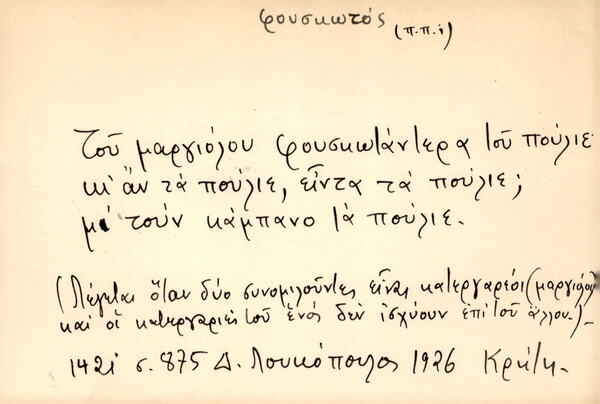 φουσκωτός
(π.π.ί)
Τοῦ μαργιόλου φουσκωτάντερα τοῦ πούλιε
κι' ἂν τά πούλιε, εἶντα τά πούλιε;
μέ τοὺν κάμπανο τά πούλιε.
(Λέγεται ὅταν δύο συνομιλοῦντες εἶναι κατεργαρέοι (μαργιόλοι)
καί οἱ κατεργαριές τοῦ ἑνός δέν ἰσχύουν ἐπί τοῦ ἄλλου.)-
1421 σ. 875 Δ. Λουκόπουλος 1926 Κρήτη.